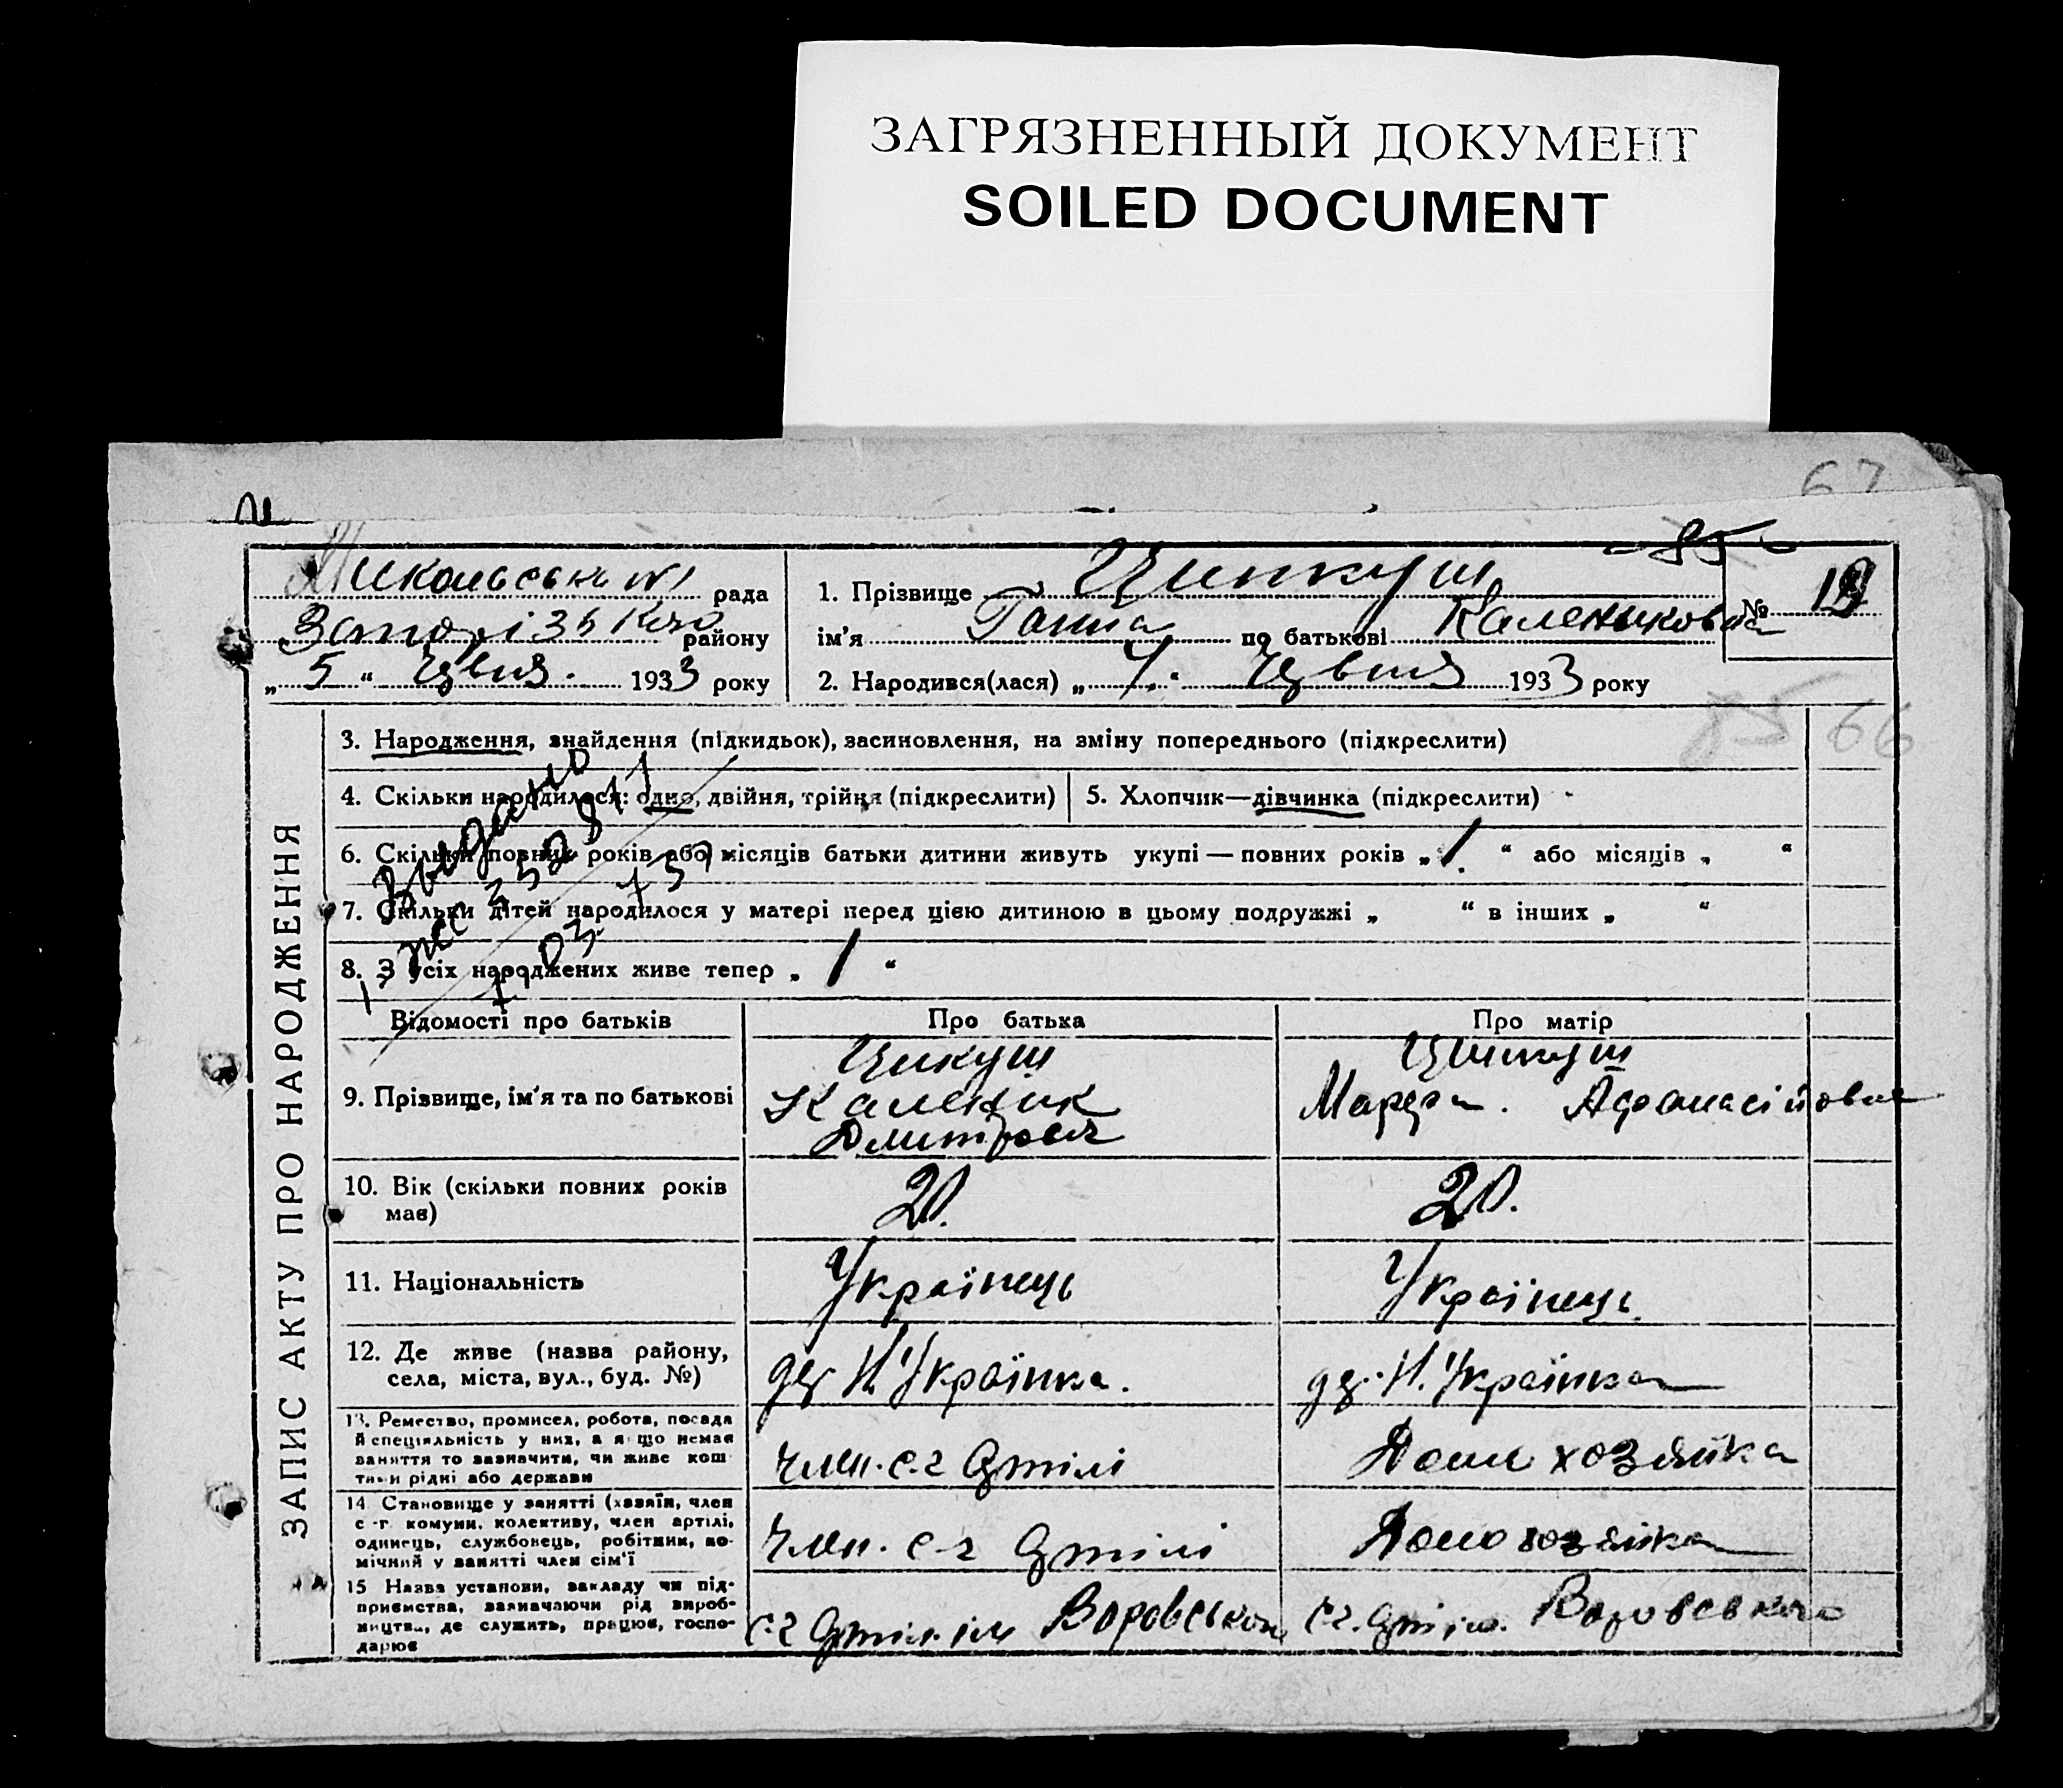 ЗАГРЯЗНЕННЫЙ ДОКУМЕНТ
SOILED DOCUMENT
67
85
Микольська №1 рада
Запорізького району
„ 5 “ Цвня. 1933 року
1. Прізвище Ципкуш
ім’я Ганна по батькові Калениковна
№ 19
2. Народився(лася) „ 1. “ Цвня 1933 року
85 66
ЗАПИС АКТУ ПРО НАРОДЖЕННЯ
3. Народження, знайдення (підкидьок), засиновлення, на зміну попереднього (підкреслити)
4. Скільки народилося: одно, двійня, трійня (підкреслити)
5. Хлопчик—дівчинка (підкреслити)
6. Скільки повних років або місяців батьки дитини живуть укупі — повних років „ 1. “ або місяців „ “
7. Скільки дітей народилося у матері перед цією дитиною в цьому подружжі „ “ в інших „ “
8. З усіх народжених живе тепер „ 1 “
Видано
Відомості про батьків
Про батька
Про матір
9. Прізвище, ім’я та по батькові
Цикуш
Каленик
Дмитрович
Ципкуш
Марфа. Афонасійовна
10. Вік (скільки повних років
має)
20.
20.
11. Національність
Українець
Українець.
12. Де живе (назва району,
села, міста, вул., буд. №)
Н. Українка.
Н. Українка
13. Ремество, промисел, робота, посада
й спеціяльність у них, а якщо немає
заняття то зазначити, чи живе кош
тами рідні або держави
член. с-г артілі
Дом хозяйка
14 Становище у занятті (хазяїн, член
с.-г. комуни, колективу, член артілі,
одинець, службовець, робітник, по-
мічний у занятті член сім’ї
член. с-г артілі
Домохозяйка
15 Назва установи, закладу чи під-
приємства, зазначаючи рід вироб-
ництва, де служить, працює, госпо-
дарює
с-г артіл. ім Воровського
с-г. артіл. Воровського